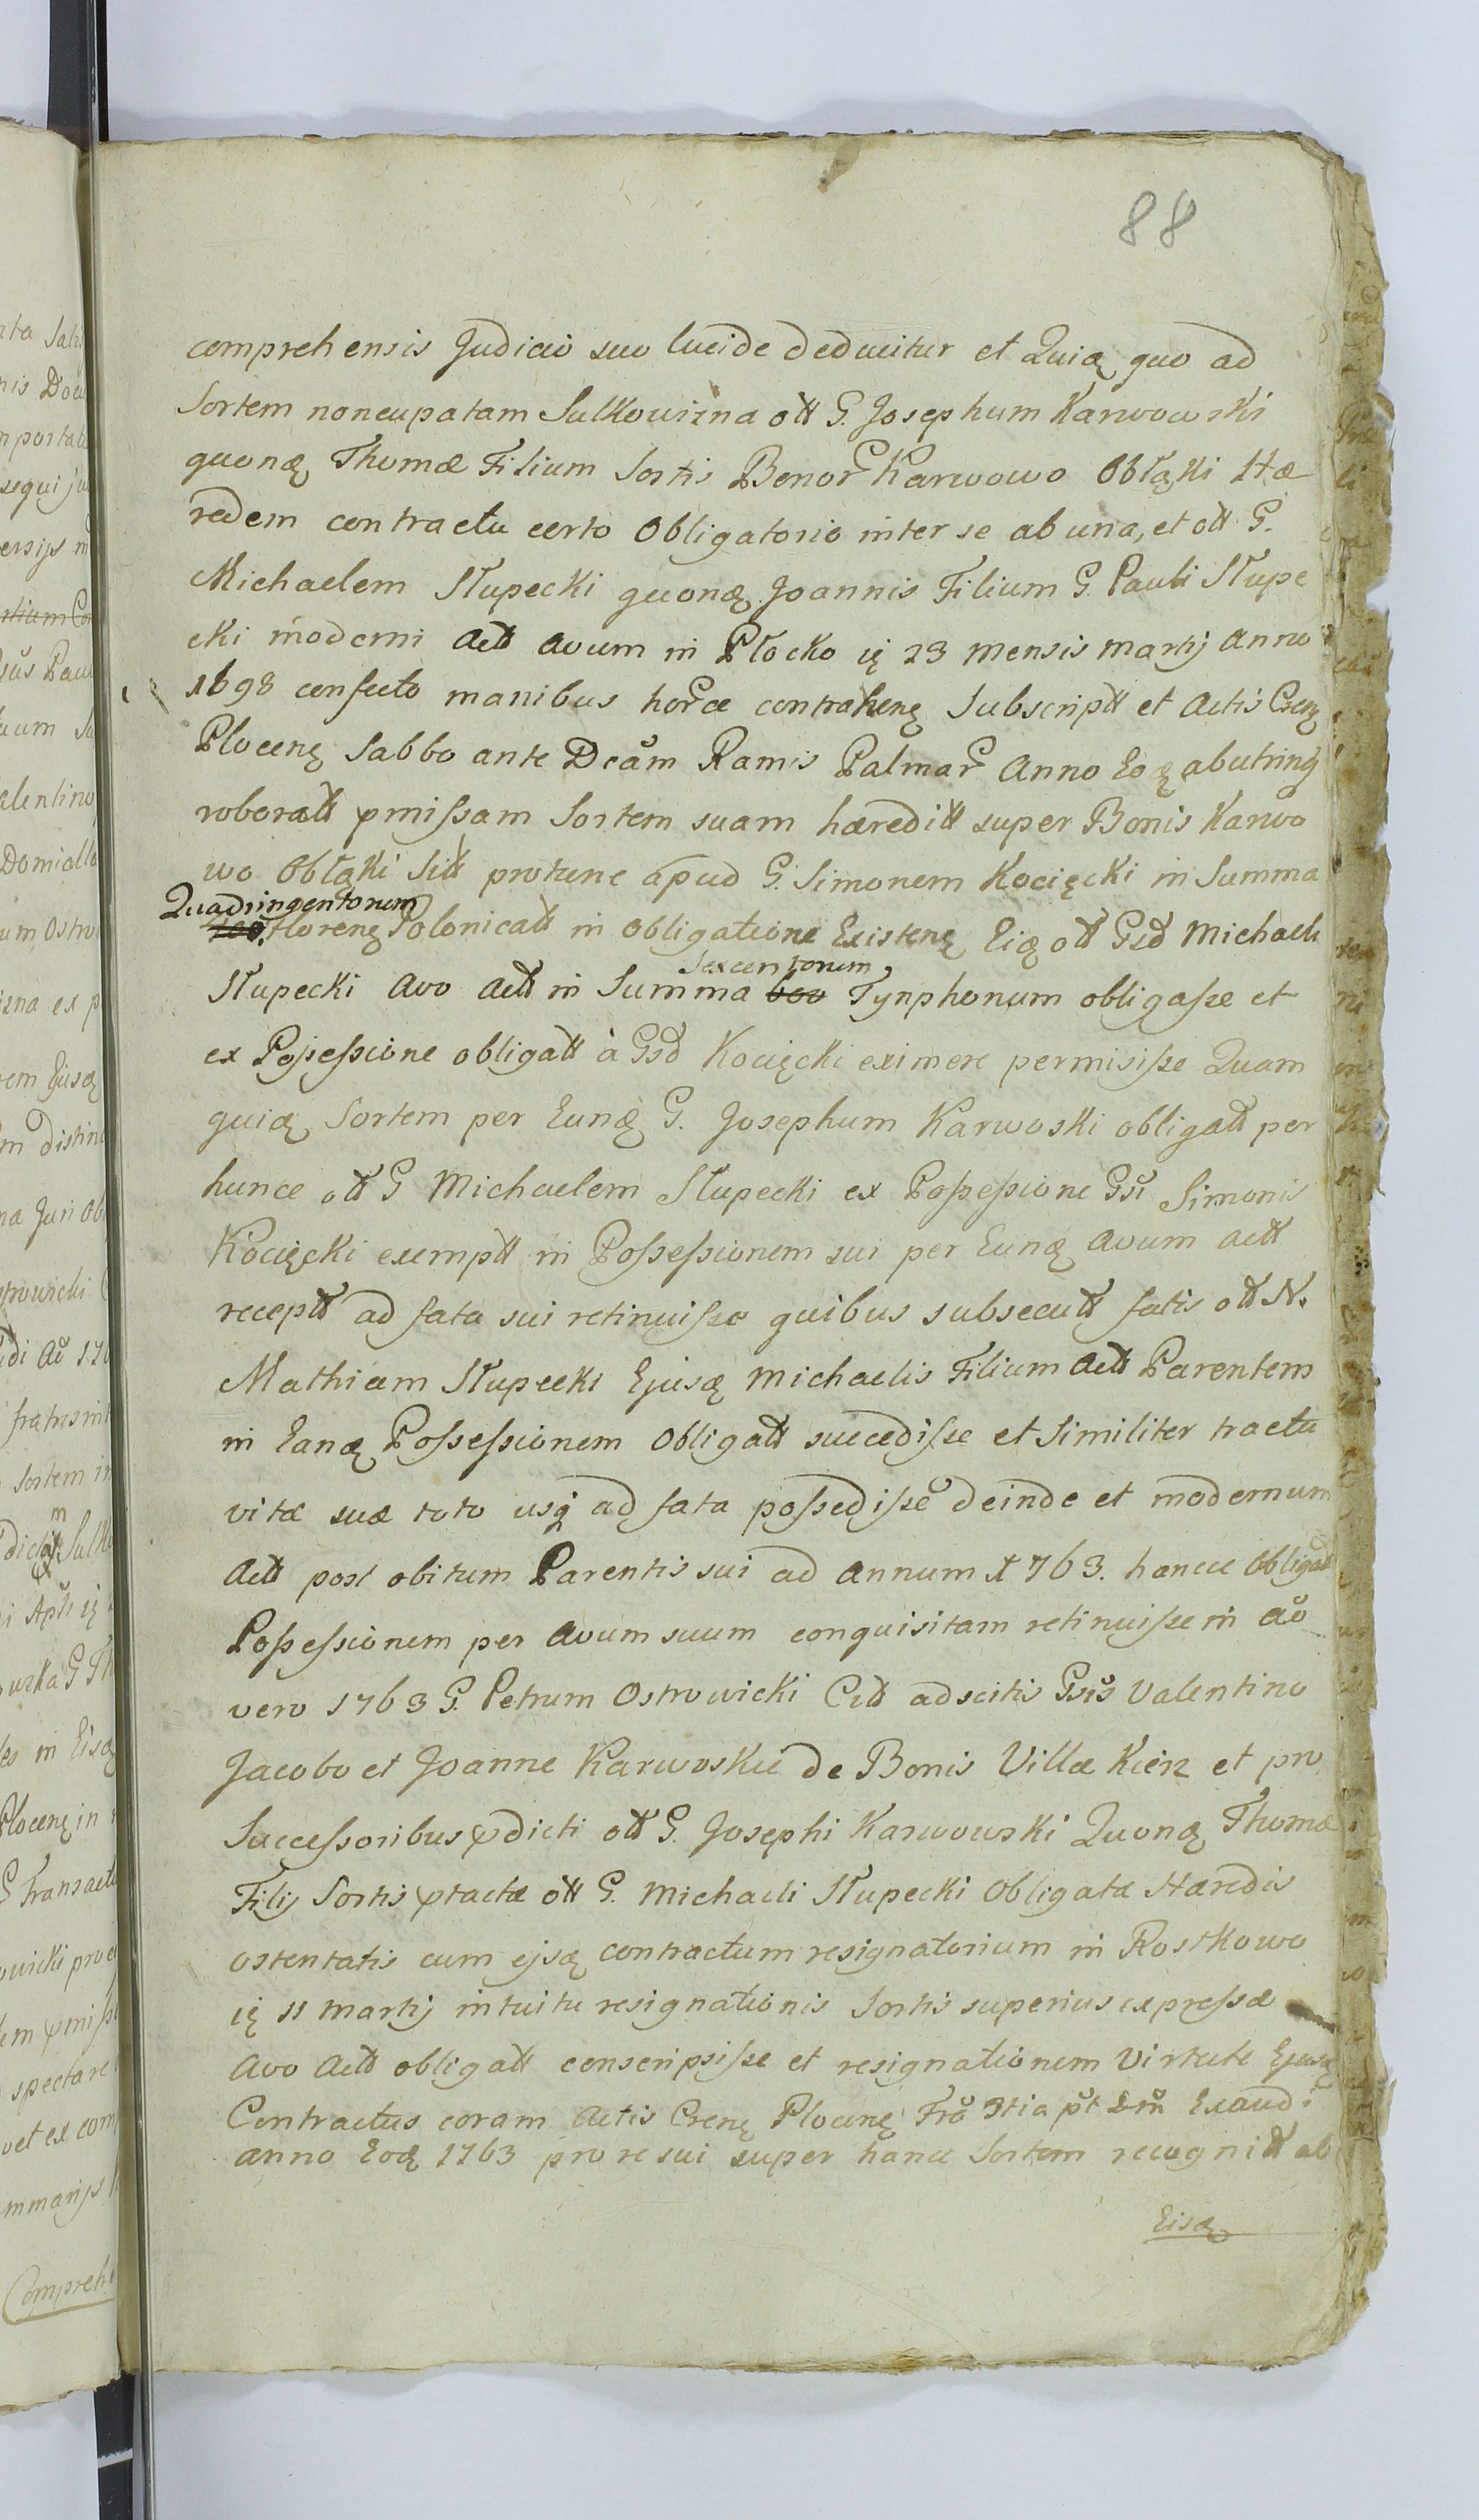 88
comprehensis Judicio suo lucide deducitur et Quią quo ad
Sortem noncupatam Sulkowizna ott G. Josephum Karwowski
quoną Thomæ Filium Sortis Bonor Karwowo Obłąki Hæ
redem contractu certo Obligatorio inter se ab una, et ott G.
Michaelem Słupecki quoną Joannis Filium G. Pauli Słupe
cki moderni Actt avum in Płocko ię 23 mensis Martij Anno
1698 confecto manibus horce contrahenę Subscriptt et Actis Crenę
Plocenę Sabbo ante Dcam Ramis Palmar Anno Eoą abutrinq
roboratt pmissam Sortem suam hæreditt super Bonis Karwo
wo Obłąki Sitt protunc apud G. Simonem Kocięcki in Summa
Quadringentorum
400. Florenę Polonicatt in obligatione Existenę Eią ott Gsd Michaeli
Sexcentorum
Słupecki Avo Actt in Summa 600 Tynphonum obligasse et
ex Possessione obligatt à Gsd Kocięcki eximere permisisse Quam
quią Sortem per Euną G. Josephum Karwoski obligatt per
hunce ott G Michaelem Słupecki ex Possessione Gsi Simonis
Kocięcki exemptt in Possessionem sui per Euną avum actt
receptt ad fata sui retinuisse quibus subsecutt fatis ott N.
Mathiam Słupecki Ejusą Michaelis Filium Actt Parentem
in Eaną Possessionem Obligatt successisse et Similiter tractu
vitæ suæ toto usq ad fata possedisse deinde et modernum
Actt post obitum Parentis sui ad Annum 1763. hance Obligatt
Possessionem per Avum suum conquisitam retinuisse in ao
vero 1763 G. Petrum Ostrowicki Citt adscitis Gsis Valentino
Jacobo et Joanne Karwoskie de Bonis Villæ Kierz et pro
Successoribus pdicti ott G. Josephi Karwowski Quoną Thomæ
Filij Sortis ptactæ ott G. Michaeli Słupecki Obligatæ Hæredis
ostentatis cum ejsą contractum resignatorium in Rostkowo
ię 11 Martij intuitu resignationis Sortis superius expressæ
Avo Actt obligatt conscripsisse et resignationem Virtute Ejusą
Contractus coram Actis Crenę Plocenę Fra 3tia pt Dm Exaudi
anno Eoą 1763 pro re sui super hance Sortem recognitt ab
Eisą